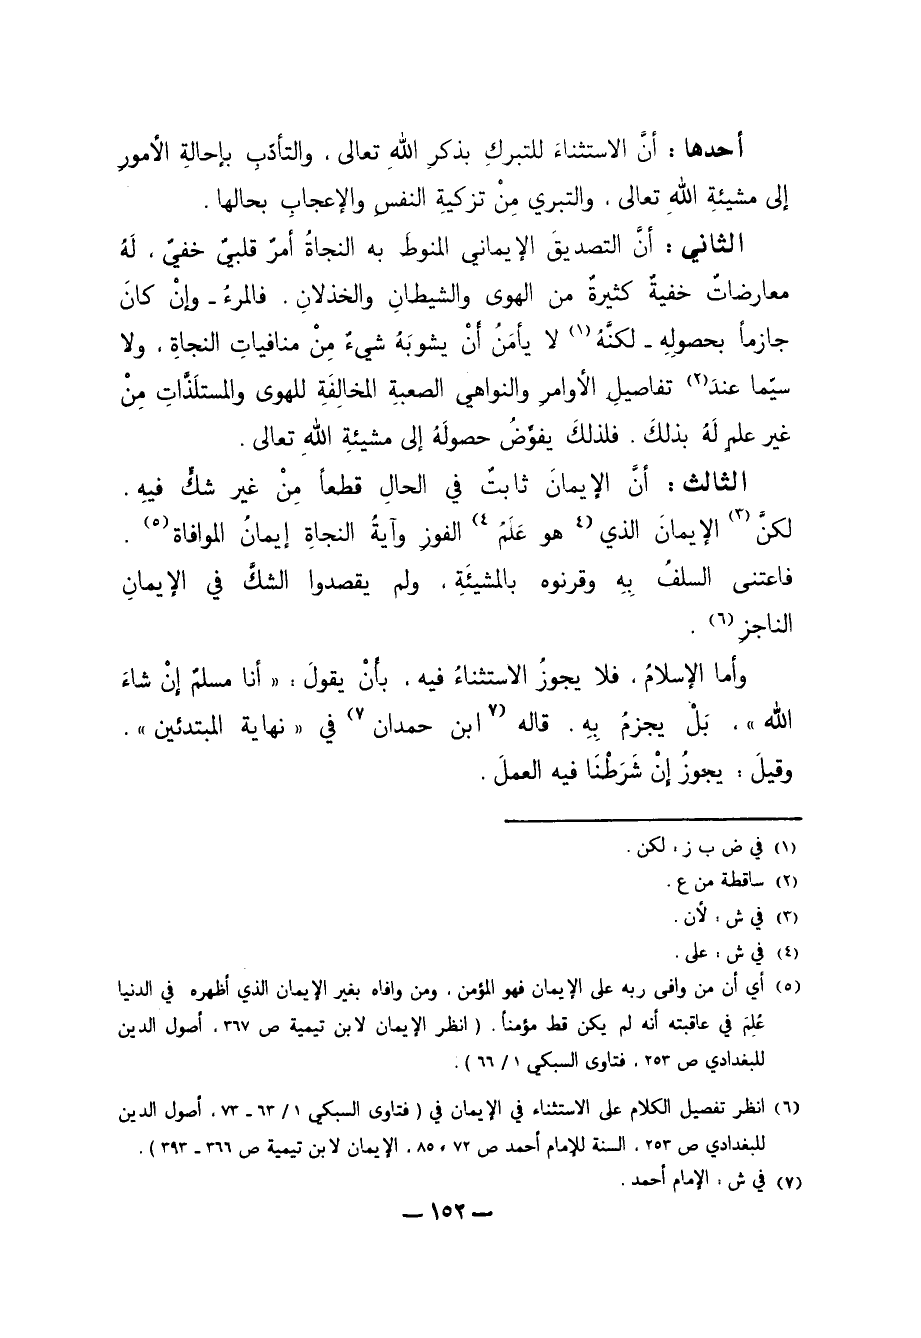 أحدها : أنَّ الاستثناءَ للتبركِ بذكرِ اللهِ تعالى ، والتأدّبِ بإحالةِ الأمورِ
إلى مشيئةِ اللهِ تعالى ، والتبري مِنْ تزكيةِ النفسِ والإعجابِ بحالها .
الثاني : أنَّ التصديقَ الإيماني المنوطَ به النجاةُ أمرٌ قلبيٌّ خفيٌّ ، لَهُ
معارضاتٌ خفيةٌ كثيرةٌ من الهوى والشيطانِ والخذلانِ . فالمرءُ ـ وإنْ كانَ
جازماً بحصولِهِ ـ لكنَّهُ (١) لا يأمَنُ أنْ يشوبَهُ شيءٌ مِنْ منافياتِ النجاةِ ، ولا
سيّما عندَ (٢) تفاصيلِ الأوامرِ والنواهي الصعبةِ المخالِفَةِ للهوى والمستلَذَّاتِ مِنْ
غيرِ علمٍ لَهُ بذلكَ . فلذلكَ يفوِّضُ حصولَهُ إلى مشيئةِ اللهِ تعالى .
الثالث : أنَّ الإيمانَ ثابتٌ في الحالِ قطعاً مِنْ غيرِ شكٍّ فيهِ .
لكنَّ (٣) الإيمانَ الذي (٤ هو عَلَمُ ٤) الفوزِ وآيةُ النجاةِ إيمانُ الموافاة (٥) .
فاعتنى السلفُ بِهِ وقرنوه بالمشيئَةِ ، ولم يقصدوا الشكَّ في الإيمانِ
الناجزِ (٦) .
وأما الإسلامُ ، فلا يجوزُ الاستثناءُ فيه ، بأنْ يقولَ : « أنا مسلمٌ إنْ شاءَ
الله » ، بَلْ يجزمُ بِهِ . قاله (٧ ابن حمدان ٧) في « نهاية المبتدئين » .
وقيلَ : يجوزُ إنْ شَرَطْنَا فيه العملَ .
(١) في ض ب ز : لكن .
(٢) ساقطة من ع .
(٣) في ش : لأن .
(٤) في ش : على .
(٥) أي أن من وافى ربه على الإيمان فهو المؤمن ، ومن وافاه بغير الإيمان الذي أظهره في الدنيا
عُلِمَ في عاقبته أنه لم يكن قط مؤمناً . ( انظر الإيمان لابن تيمية ص ٣٦٧ ، أصول الدين
للبغدادي ص ٢٥٣ ، فتاوى السبكي ١ / ٦٦ ) .
(٦) انظر تفصيل الكلام على الاستثناء في الإيمان في ( فتاوى السبكي ١ / ٦٣ ـ ٧٣ ، أصول الدين
للبغدادي ص ٢٥٣ ، السنة للإمام أحمد ص ٧٢ ، ٨٥ ، الإيمان لابن تيمية ص ٣٦٦ ـ ٣٩٣ ) .
(٧) في ش : الإمام أحمد .
— ١٥٢ —